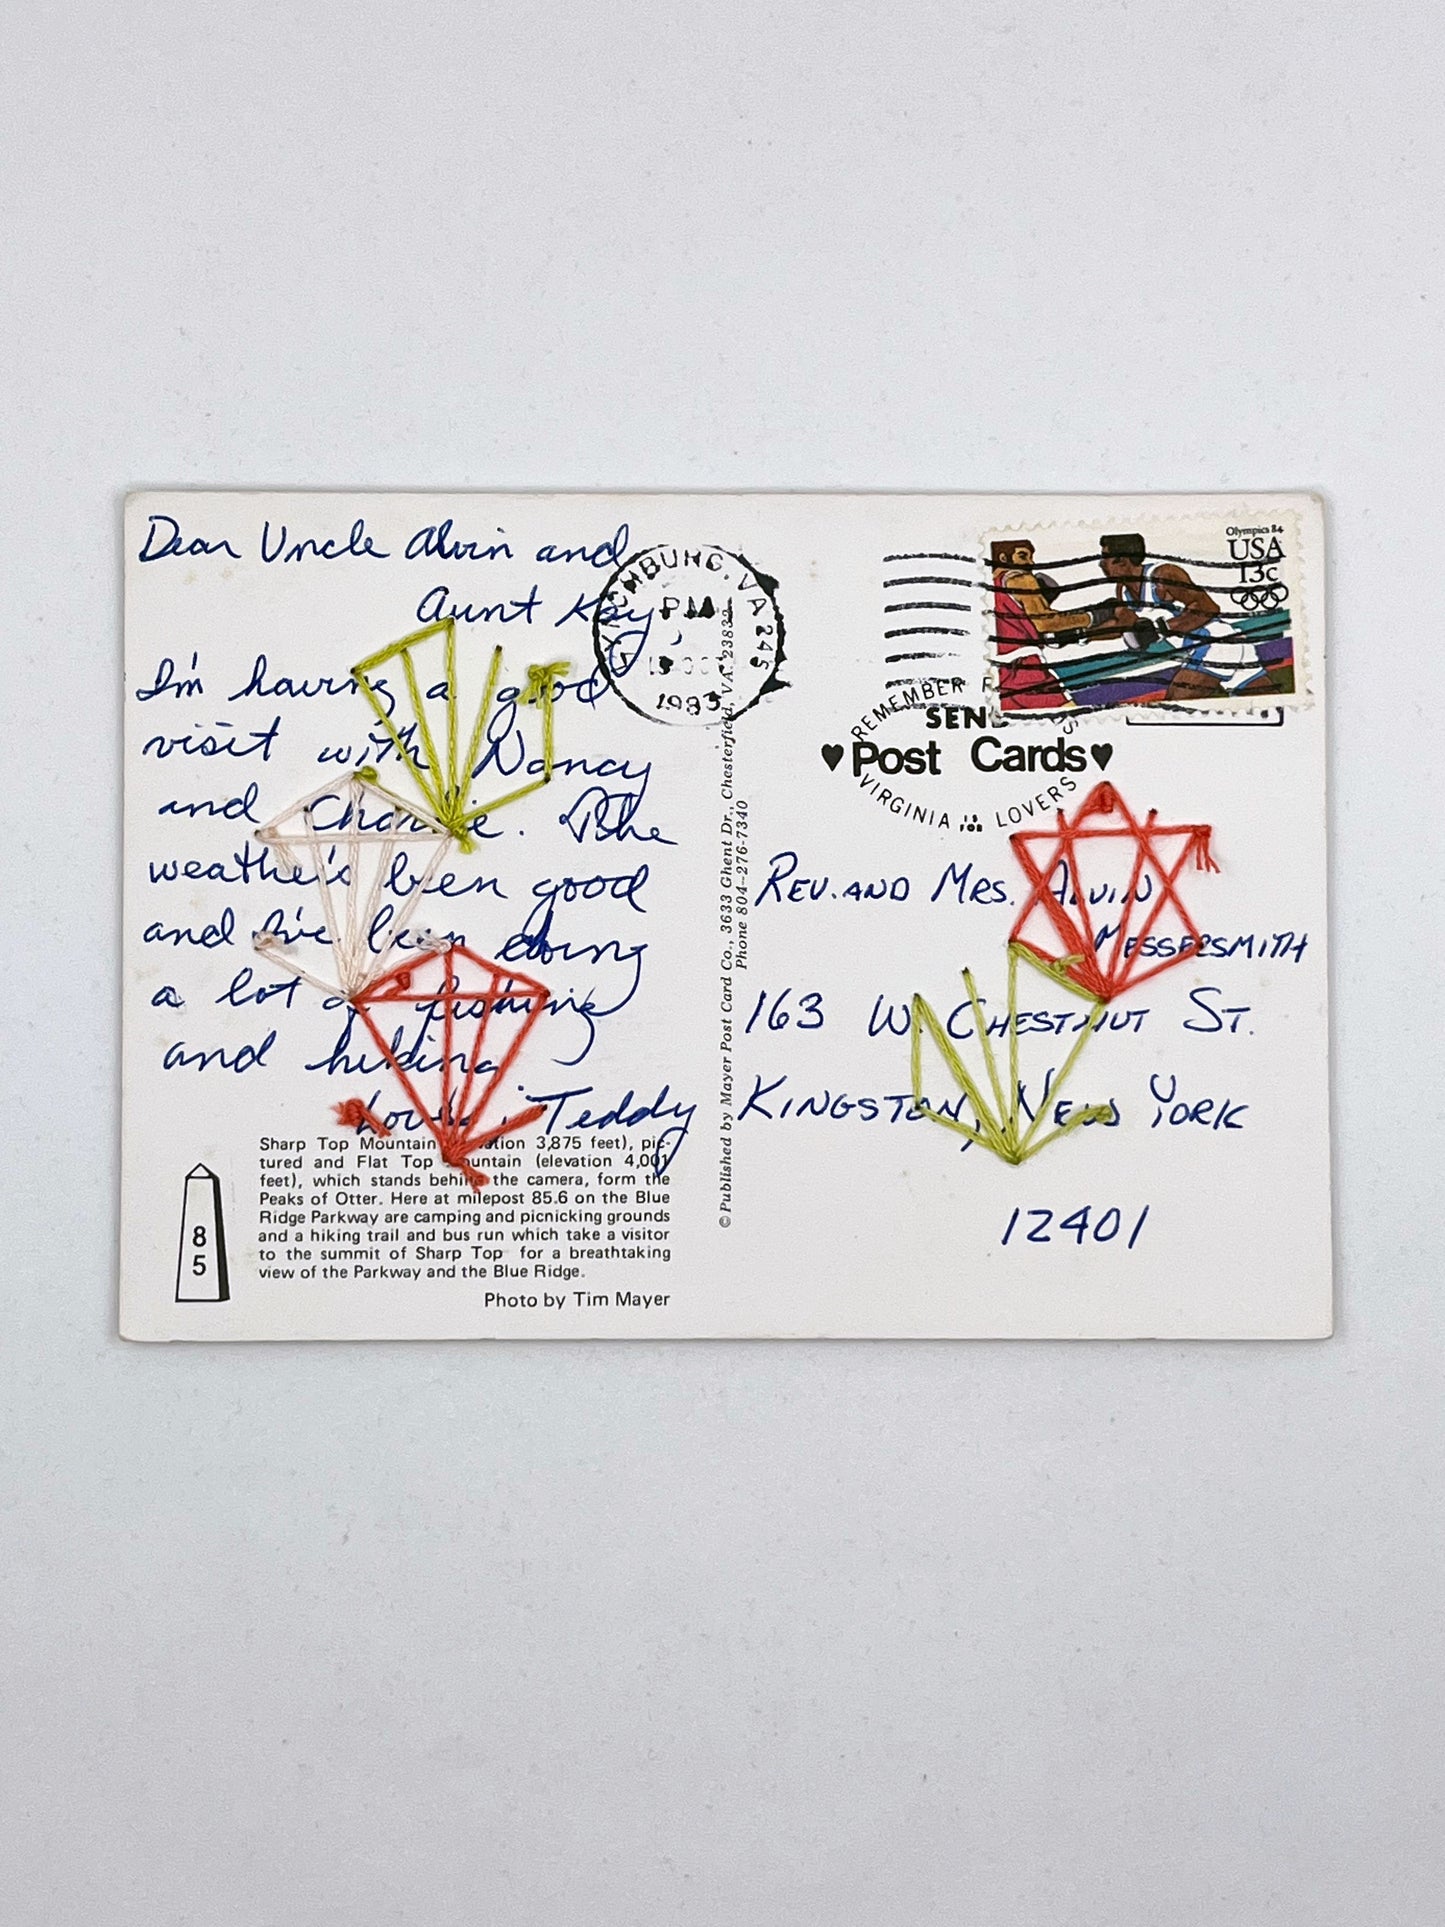 Dear Uncle Alvin and
Aunt Kay,
I'm having a good
visit with Nancy
and Charlie. The
weather's been good
and I've been doing
a lot of fishing
and hiking
Love, Teddy
Sharp Top Mountain (elevation 3,875 feet), pic-
tured and Flat Top Mountain (elevation 4,001
feet), which stands behind the camera, form the
Peaks of Otter. Here at milepost 85.6 on the Blue
Ridge Parkway are camping and picnicking grounds
and a hiking trail and bus run which take a visitor
to the summit of Sharp Top for a breathtaking
view of the Parkway and the Blue Ridge.
Photo by Tim Mayer
8
5
© Published by Mayer Post Card Co., 3633 Ghent Dr., Chesterfield, VA. 23832
Phone 804-276-7340
LYNCHBURG, VA 245
PM
1983
Olympics 84
USA
13c
REMEMBER
SEND
Post Cards
VIRGINIA IS FOR LOVERS
REV. AND MRS. ALVIN
MESSERSMITH
163 W. CHESTNUT ST.
KINGSTON, NEW YORK
12401